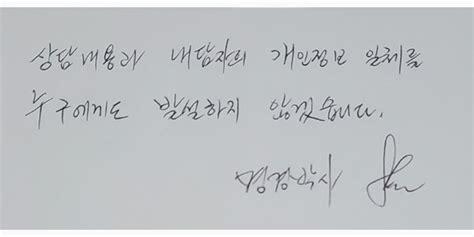 상담내용과 내담자의 개인정보 일체를
누구에게도 발설하지 않겠습니다.